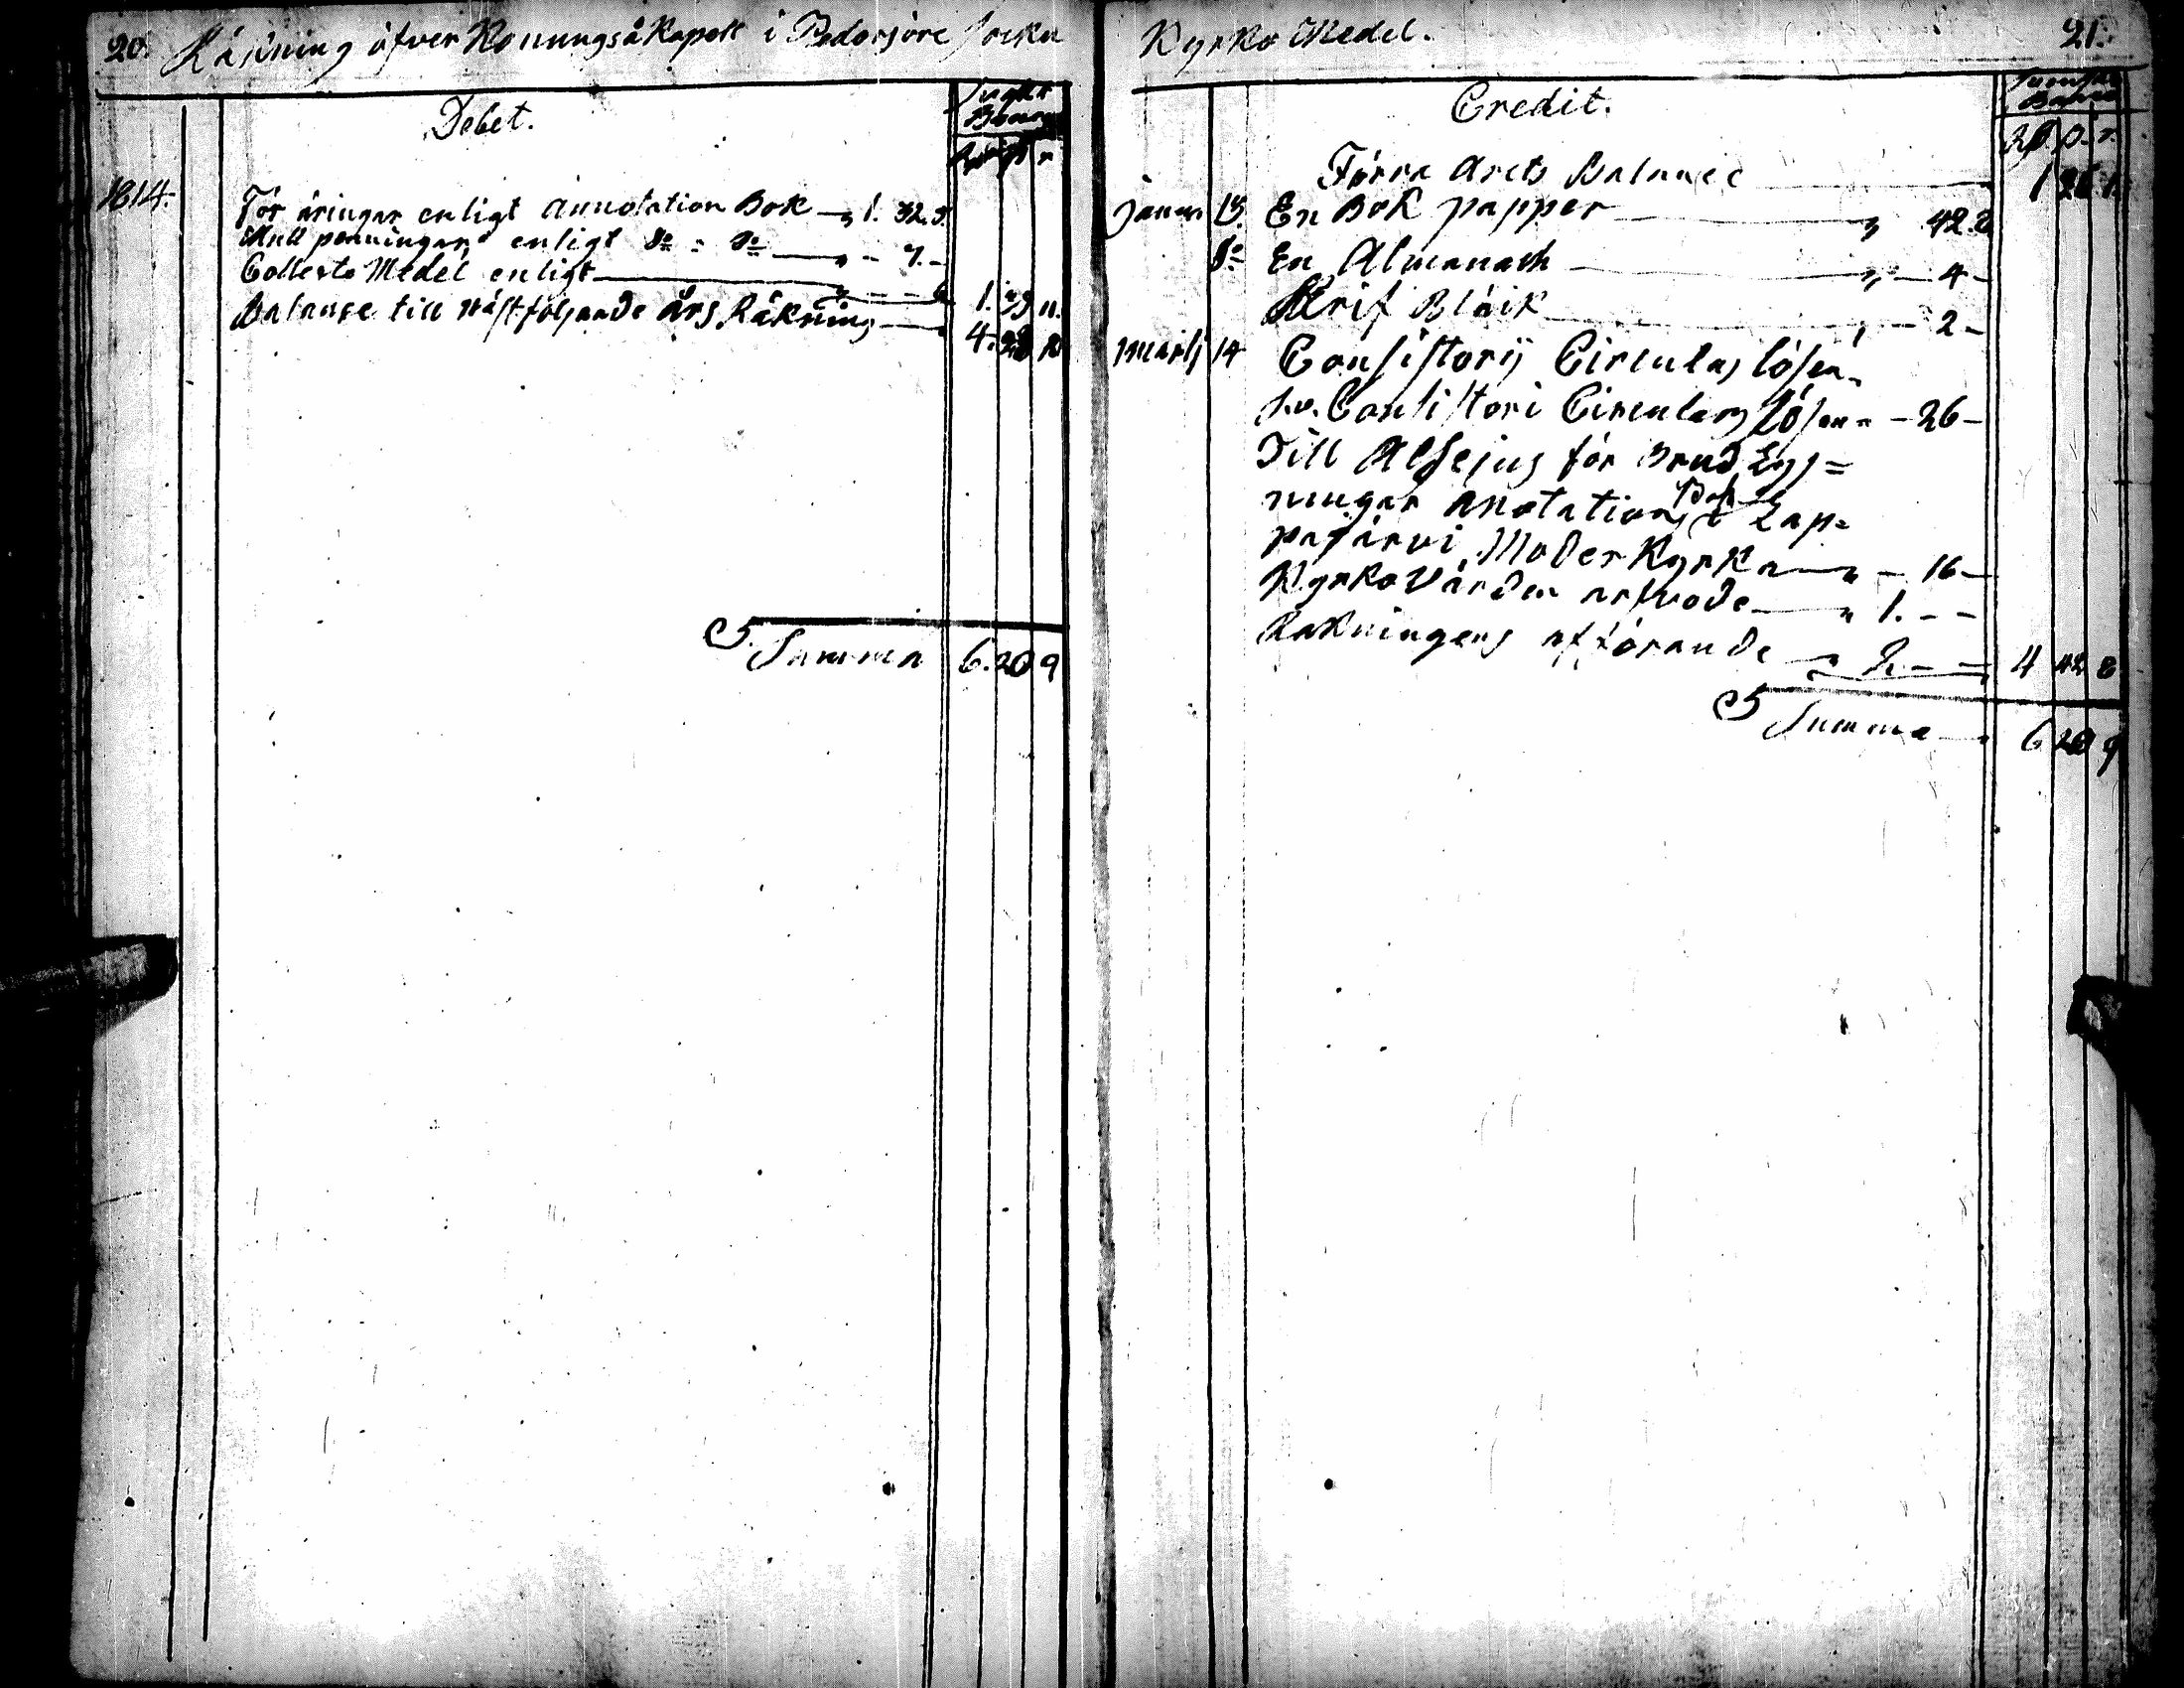 20. Räkning öfver Konungså Kapell i Pedersjöre Socku
Debet.
1814. För äringar enligt Annotation Bok 1. 32. 5.
Mull penningar enligt do = do - 7. -
Collects Medel enligt - - 6 1. 39 11.
Balance till näst följande års Räkning 4. 28 10
Summa 6. 20 9
Kyrko Medel. 21.
Credit.
Förra Arets Balance 1 26 1
Januar 15. En Bok papper 42. 8
do En Almanach 4 -
Skrif Bläik - 2 -
Martij 14 Consistorij Circulas lösen
Consistori Circulars lösen - 26 -
Till Alseius för Brud Lys=
ningar anotations Bok i Lap=
pajärvi Moder Kyrka - 16 -
Kyrko Värden arfvode 1. - -
Räkningens afförande 2. - - 4 42 8
Summa 6 20 9